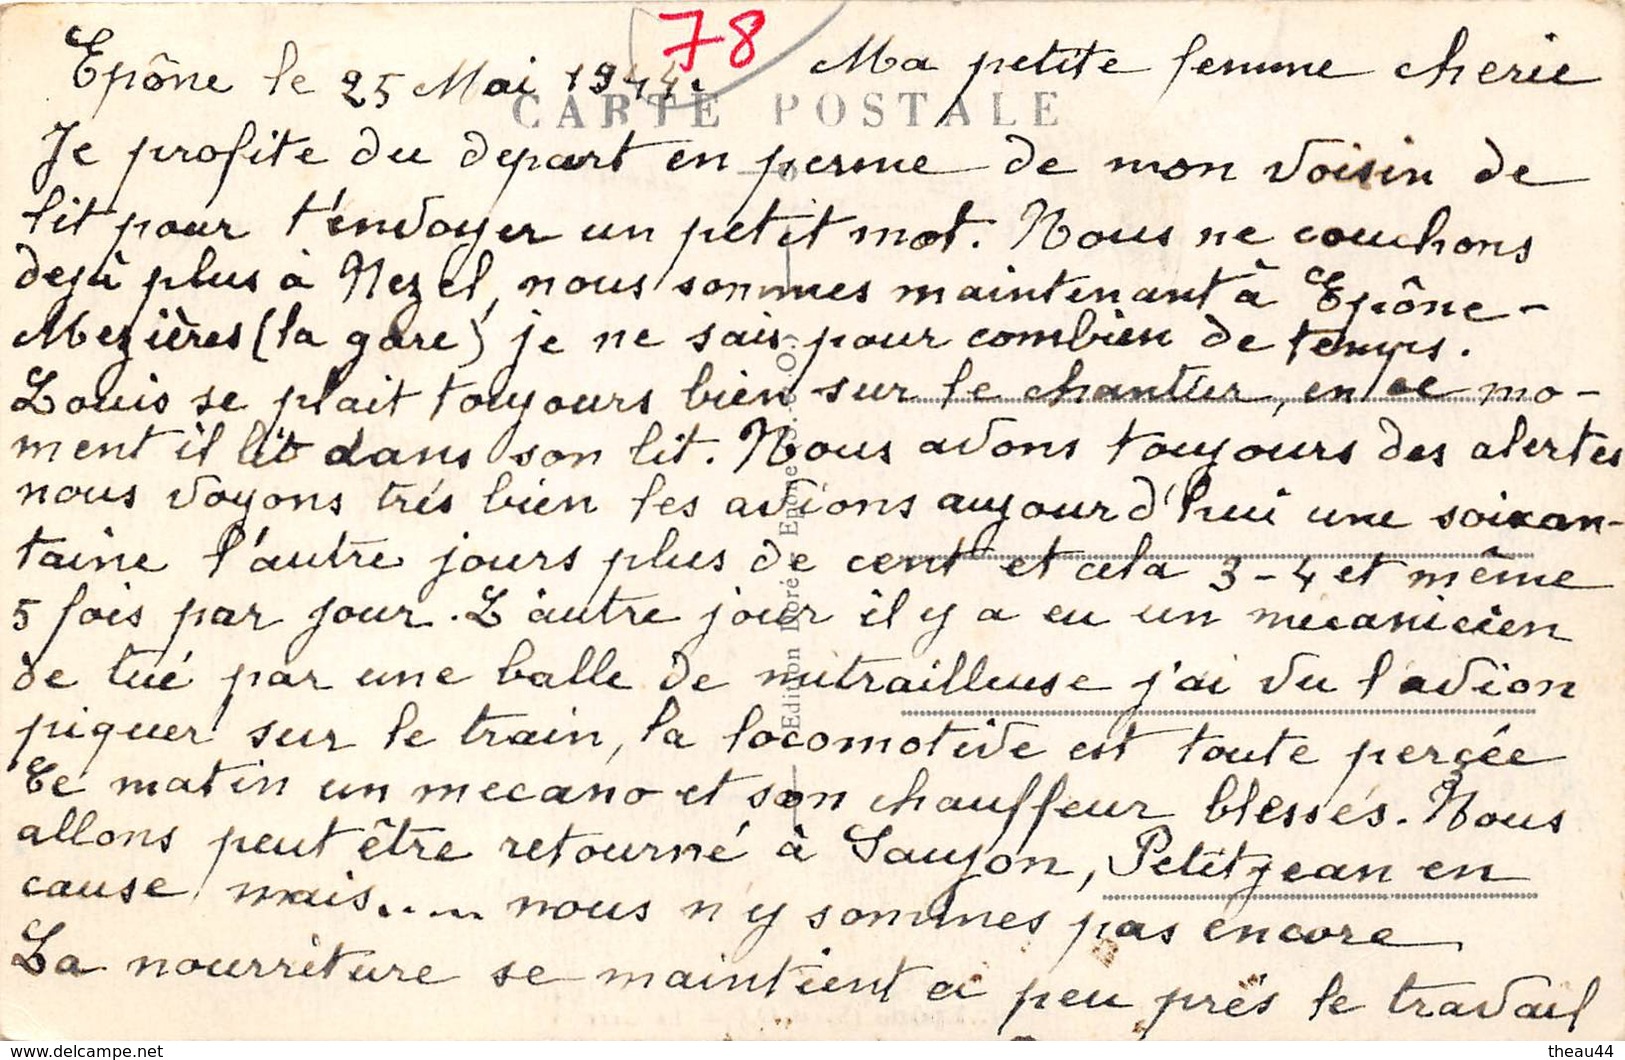 78
Epône le 25 Mai 1944. Ma petite femme cherie
CARTE POSTALE
Je profite du depart en perme de mon voisin de
lit pour t'envoyer un petit mot. Nous ne couchons
dejà plus à Nezel, nous sommes maintenant à Epône-
Mezières (la gare) je ne sais pour combien de temps.
Louis se plait toujours bien sur le chantier, en ce mo-
ment il lit dans son lit. Nous avons toujours des alertes
nous voyons trés bien les avions aujourd'hui une soixan-
taine l'autre jours plus de cent et cela 3-4 et même
5 fois par jour. L'autre jour il y a eu un mecanicien
de tué par une balle de mitrailleuse j'ai vu l'avion
piquer sur le train, la locomotive est toute perçée
Ce matin un mecano et son chauffeur blessés. Nous
allons peut être retourné à Saujon, Petitjean en
cause mais..... nous n'y sommes pas encore
La nourriture se maintient a peu près le travail
Edition Doré Epône
theau44